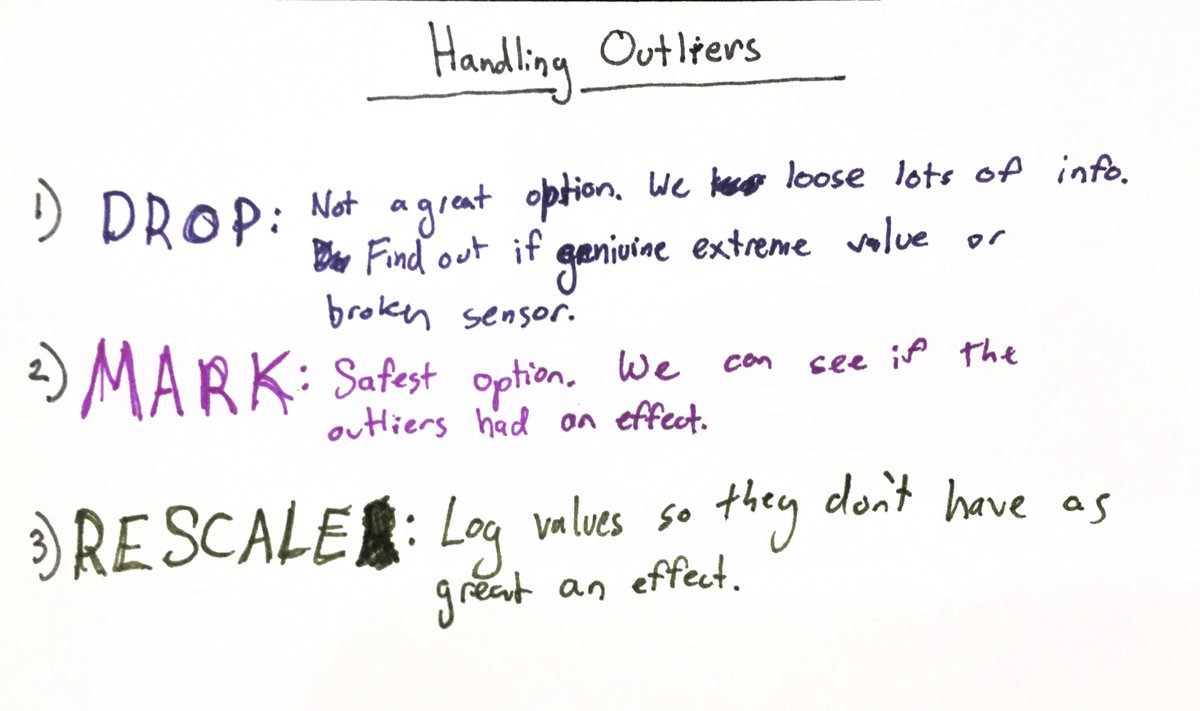 Handling Outliers
1) DROP: Not a great option. We loose lots of info.
Find out if geniuine extreme value or
broken sensor.
2) MARK: Safest option. We can see if the
outliers had an effect.
3) RESCALE: Log values so they don't have as
great an effect.